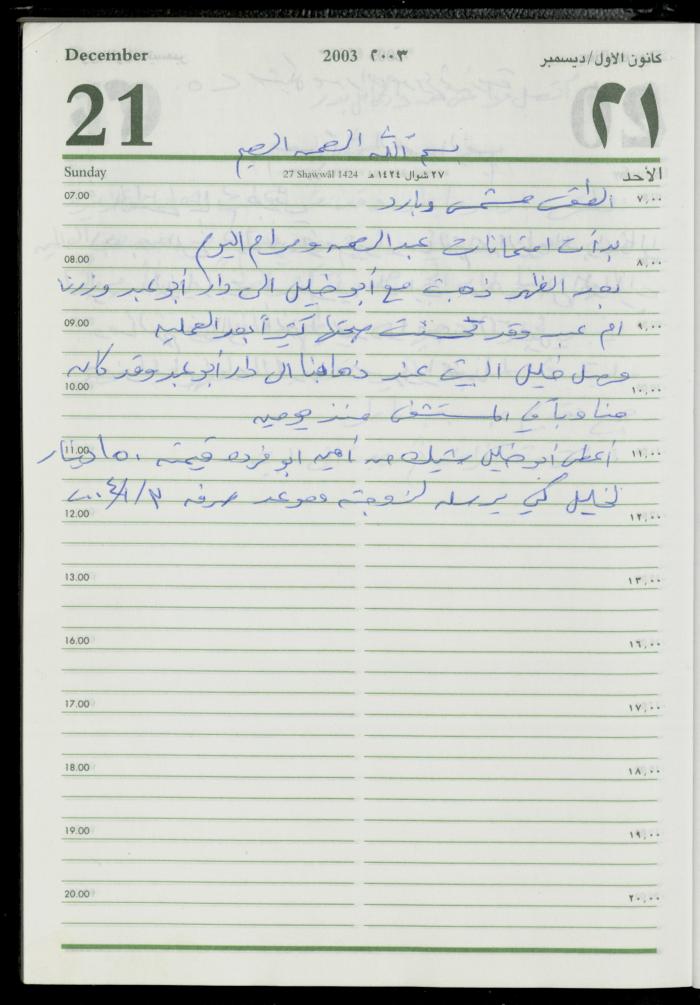 December 2003 ٢٠٠٣ كانون الاول/ديسمبر
21 ٢١
بسم الله الرحمن الرحيم
Sunday 27 Shawwāl 1424 ٢٧ شوال ١٤٢٤ هـ الأحد
07.00 الطقس مشمس وبارد ٧,٠٠
بدأت امتحانات عبد الرحمن ومرام اليوم
08.00 ٨,٠٠
بعد الظهر ذهبت مع أبو خليل الى دار أبو عبد وزرنا
09.00 ام عبد وقد تحسنت صحتها كثيراً بعد العمليه ٩,٠٠
وصل خليل البيت عند ذهابنا الى دار أبو عبد وقد كان
10.00 ١٠,٠٠
مناوباً في المستشفى منذ يومين
11.00 أعطى أبو خليل شيك من أمين ابو فرده قيمته ١٥٠ دينار ١١,٠٠
لخليل كي يرسله لزوجته وموعد صرفه ٢٠٠٤/١/٣
12.00 ١٢,٠٠
13.00 ١٣,٠٠
16.00 ١٦,٠٠
17.00 ١٧,٠٠
18.00 ١٨,٠٠
19.00 ١٩,٠٠
20.00 ٢٠,٠٠